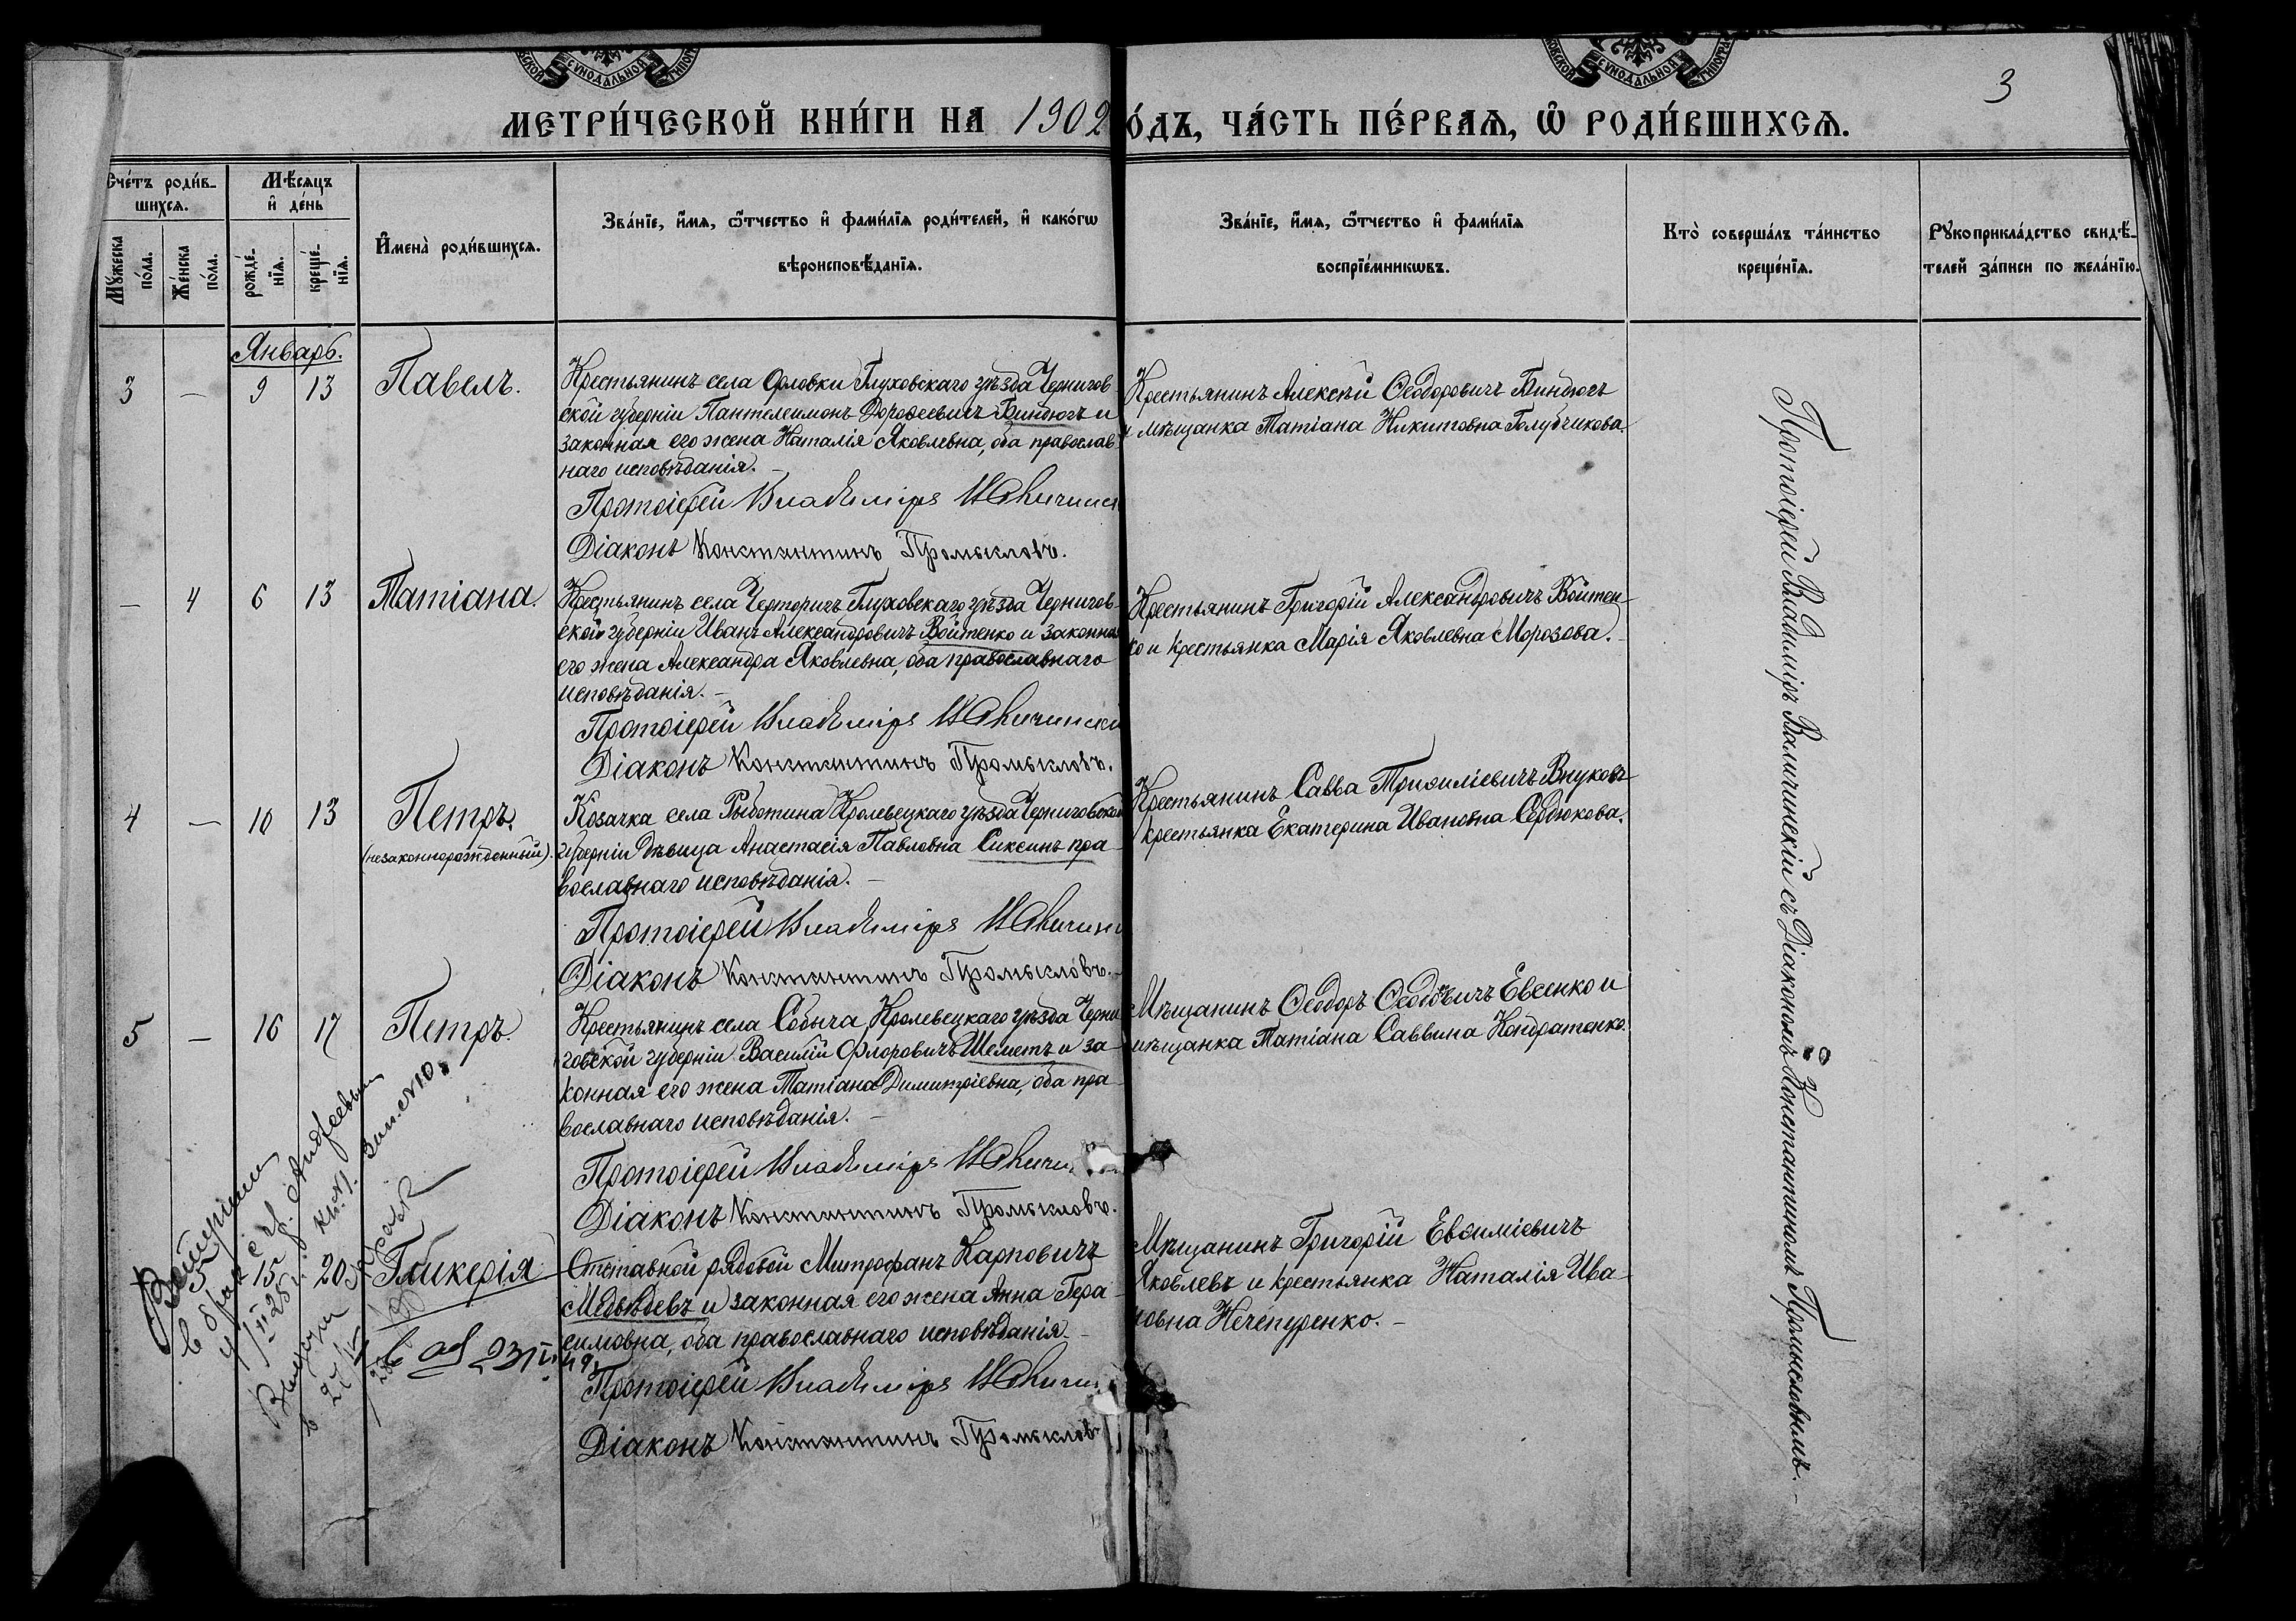 3
МЕТРИ́ЧЕСКОЙ КНИ́ГИ НА 1902 О́ДЪ, ЧА́СТЬ ПЕ́РВАѦ, Ѡ РОДИ́ВШИХСѦ.
Сче́тъ роди́в-
шихсѧ.
Мѣ́сяцъ
и де́нь
Мꙋ́жеска
по́ла.
Же́нска
по́ла.
рожде́-
нїѧ.
креще́-
нїѧ.
И҆мена̀ роди́вшихсѧ.
Зва́нїе, и҆́мѧ, ѻ҆́тчество и҆ фами́лїѧ роди́телей, и҆ како́гѡ
вѣроисповѣ́данїѧ.
Зва́нїе, и҆́мѧ, ѻ҆́тчество и҆ фами́лїѧ
воспрїе́мникѡвъ.
Кто̀ соверша́лъ та́инство
креще́нїѧ.
Рꙋкоприкла́дство свидѣ́-
телей за́писи по жела́нїю.
Январь.
3 — 9 13 Павелъ.
Крестьянинъ села Орловки Глуховскаго уѣзда Чернигов
ской губерніи Пантелеимонъ Дорофеевичъ Биндюгъ и
законная его жена Наталія Яковлевна, оба православ
наго исповѣданія. —
Протоіерей Владиміръ
Діаконъ Константинъ Промысловъ.
Крестьянинъ Алексѣй Ѳеодоровичъ Биндюгъ
и мѣщанка Татіана Никитовна Голубчикова.
— 4 6 13 Татіана.
Крестьянинъ села Черторигъ Глуховскаго уѣзда Чернигов-
ской губерніи Иванъ Александровичъ Войтенко и законная
его жена Александра Яковлевна, оба православнаго
исповѣданія. —
Протоіерей Владиміръ
Діаконъ Константинъ Промысловъ.
Крестьянинъ Григорій Александровичъ Войтен-
ко и крестьянка Марія Яковлевна Морозова. —
4 — 10 13 Петръ.
(незаконнорожденный).
Козачка села Рыботина Кролевецкаго уѣзда Черниговской
губерніи дѣвица Анастасія Павловна Сиксинъ пра-
вославнаго исповѣданія. —
Протоіерей Владиміръ
Діаконъ Константинъ Промысловъ. —
Крестьянинъ Савва Трифиліевичъ Внуковъ
крестьянка Екатерина Ивановна Сердюкова.
5 — 16 17 Петръ.
Крестьянинъ села Собыча, Кролевецкаго уѣзда Черни
говской губерніи Василій Флоровичъ Шеметъ и за-
конная его жена Татіана Димитріевна, оба пра-
вославнаго исповѣданія. —
Протоіерей Владиміръ
Діаконъ Константинъ Промысловъ.
Мѣщанинъ Ѳеодоръ Ѳеодоровичъ Евсенко и
мѣщанка Татіана Саввина Кондратенко.
5 15 20 Гликерія
Отставной рядовой Митрофанъ Карповичъ
Медвѣдевъ и законная его жена Анна Гера-
симовна, оба православнаго исповѣданія. —
Протоіерей Владиміръ
Діаконъ Константинъ Промысловъ
Мѣщанинъ Григорій Евѳиміевичъ
Яковлевъ и крестьянка Наталія Ива-
новна Нечепуренко. —
Протоіерей Владиміръ Валичинскій съ Діакономъ Константиномъ Промысловымъ. —